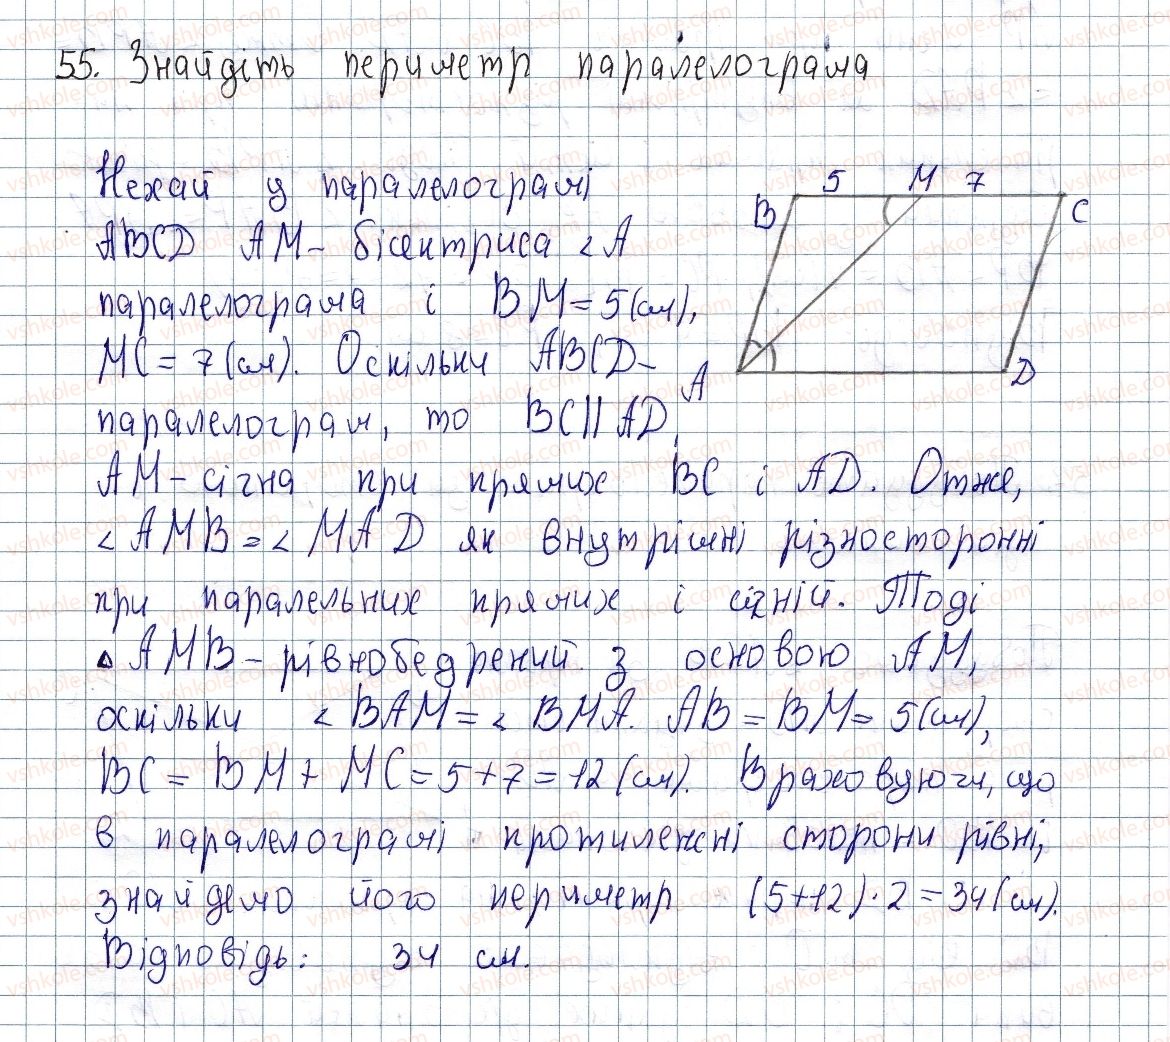 55. Знайдіть периметр паралелограма
Нехай у паралелограмі
ABCD AM – бісектриса ∠A
паралелограма і BM = 5 (см),
MC = 7 (см). Оскільки ABCD –
паралелограм, то BC || AD,
AM – січна при прямих BC і AD. Отже,
∠AMB = ∠MAD як внутрішні різносторонні
при паралельних прямих і січній. Тоді
△AMB – рівнобедрений з основою AM,
оскільки ∠BAM = ∠BMA. AB = BM = 5 (см),
BC = BM + MC = 5 + 7 = 12 (см). Враховуючи, що
в паралелограмі протилежні сторони рівні,
знайдемо його периметр (5+12)·2 = 34 (см).
Відповідь: 34 см.
5 M 7
B C
A D
vshkole.com